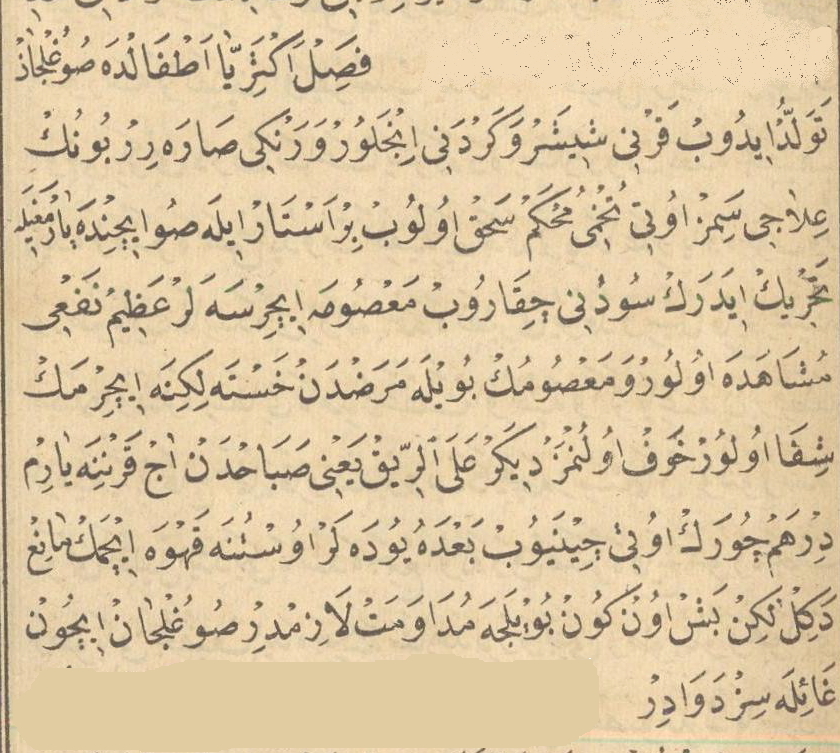 فَصِلْ اَكْثَرِيَّا اَطْفَالْدَه صُوغُلْجَانْ
تَوَلُّدْ ايدُوبْ قَرْنِي شِيشَرْ وَكَرْدَنِي اِنْجَلُورْ وَرَنْكِي صَارَه رِرْ بُونُكْ
عِلاٰجِي سَمِزْ اُوتِي تُخْمِي مُحْكَمْ سَحَقْ اُولُوبْ بِرْ اَسْتَارْ اِيلَه صُو اِيچِنْدَه يَارْمَغِيلَه
تَحْرِيكْ اِيدَرَكْ سُودُنِي چِقَارُوبْ مَعْصُومَه اِيچِرْسَه لَرْ عَظِيمْ نَفْعِي
مُشَاهَدَه اُولُورْ وَمَعْصُومُكْ بُويْلَه مَرَضْدَنْ خَسْتَه لِكِنَه اِيچِرْمَكْ
شِفَا اُولُورْ خَوَفْ اُولُنْمَزْ دِيكَرْ عَلَى الرِّيقْ يَعْنِي صَبَاحْدَنْ اٰجْ قَرْنِنَه يَارِمْ
دِرْهَمْ چُورَكْ اُوتِي چِينَيُوبْ بَعْدَهُ يُودَه لَرْ اُوسْتُنَه قَهْوَه اِيچْمَكْ مَانِعْ
دَكِلْ لٰكِنْ بَشْ اُونْ كُونْ بُويْلَجَه مُدَاوَمَتْ لاَزِمْدِرْ صُوغُلْجَانْ اِيچُونْ
غَائِلَه سِزْ دَوَادِرْ